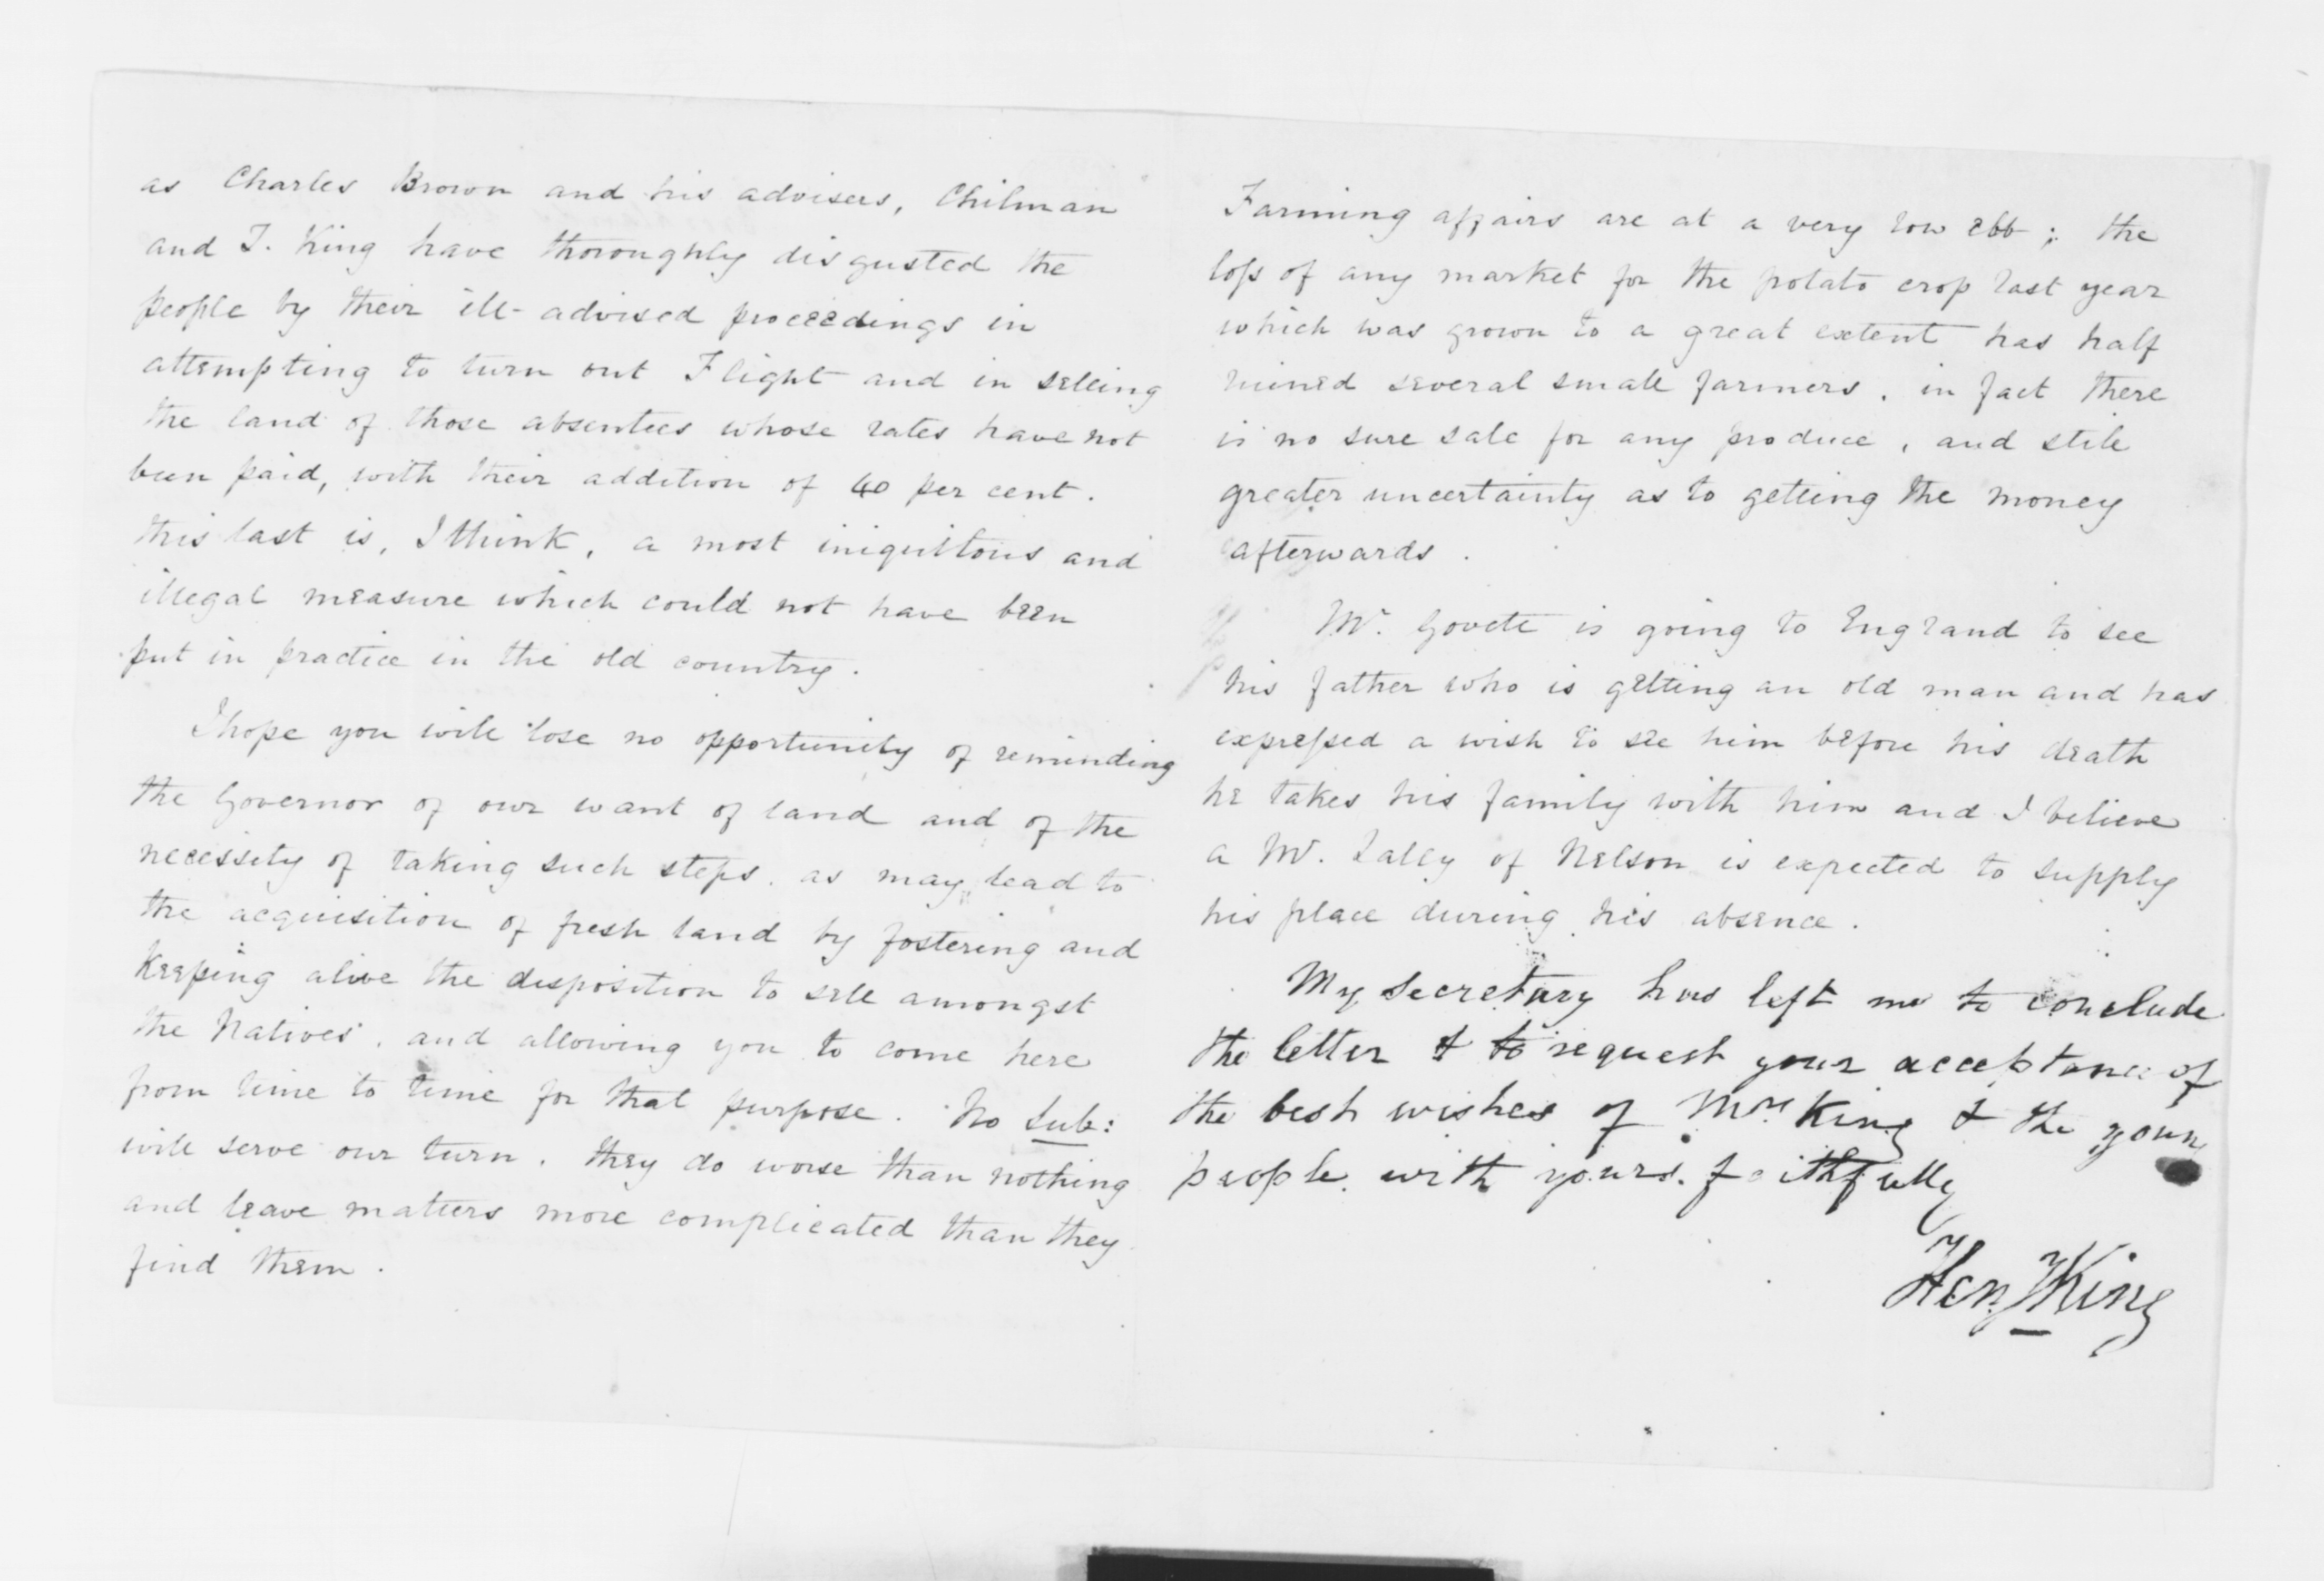 as Charles Brown and his advisers, Chilman
and T. King have thoroughly disgusted the
people by their ill-advised proceedings in
attempting to turn out Flight and in selling
the land of those absentees whose rates have not
been paid, with their addition of 40 per cent.
this last is, I think, a most iniquitous and
illegal measure which could not have been
put in practice in the old country.
I hope you will lose no opportunity of reminding
the Governor of our want of land and of the
necessity of taking such steps as may lead to
the acquisition of fresh land by fostering and
keeping alive the disposition to sell amongst
the Natives, and allowing you to come here
from time to time for that purpose. No Sub:
will serve our turn. they do worse than nothing
and leave matters more complicated than they
find them.
Farming affairs are at a very low ebb; the
loss of any market for the potato crop last year
which was grown to a great extent has half
ruined several small farmers. in fact there
is no sure sale for any produce, and still
greater uncertainty as to getting the money
afterwards.
Mr. Govett is going to England to see
his father who is getting an old man and has
expressed a wish to see him before his death
he takes his family with him and I believe
a Mr. of Nelson is expected to supply
his place during his absence.
My Secretary has left me to conclude
the letter & to request your acceptance of
the best wishes of Mrs King & the young
people with yours faithfully
Hen King